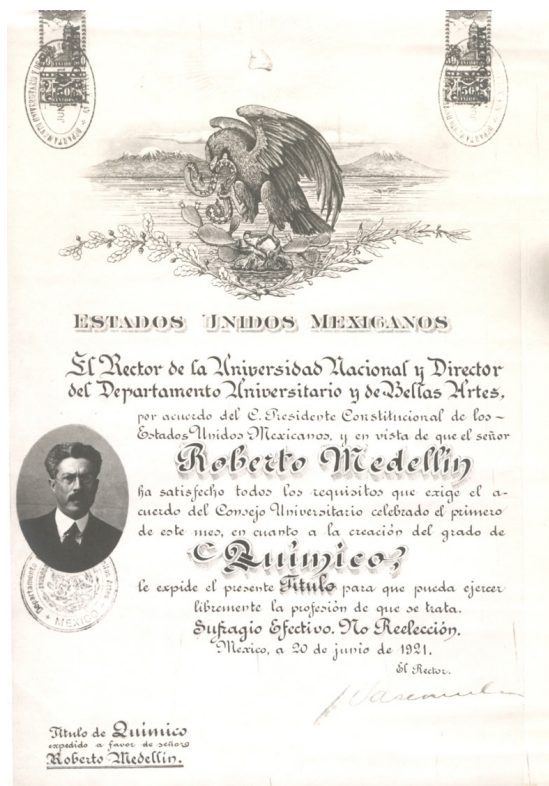 50 50
MEXICO
JUN
DEPARTAMENTO UNIVERSITARIO Y DE
50 50
MEXICO
JUN
DEPARTAMENTO UNIVERSITARIO Y DE
ESTADOS UNIDOS MEXICANOS
El Rector de la Universidad Nacional y Director
del Departamento Universitario y de Bellas Artes,
por acuerdo del C. Presidente Constitucional de los ~
Estados Unidos Mexicanos, y en vista de que el señor
Roberto Medellín
ha satisfecho todos los requisitos que exige el a-
cuerdo del Consejo Universitario celebrado el primero
de este mes, en cuanto a la creación del grado de
Químico,
le expide el presente Título para que pueda ejercer
libremente la profesión de que se trata.
Sufragio Efectivo. No Reelección.
México, a 20 de junio de 1921.
El Rector.
Departamento
MEXICO
Título de Químico
expedido a favor de señor
Roberto Medellín.